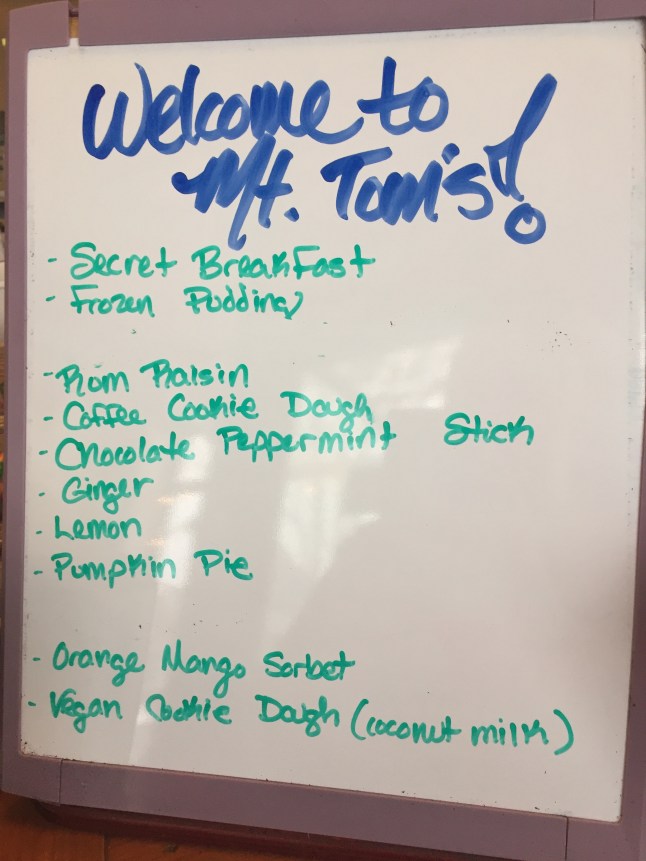 Welcome to
Mt. Tom's!
- Secret Breakfast
- Frozen Pudding
- Rom Raisin
- Coffee Cookie Dough
- Chocolate Peppermint Stick
- Ginger
- Lemon
- Pumpkin Pie
- Orange Mango Sorbet
- Vegan Cookie Dough (coconut milk)